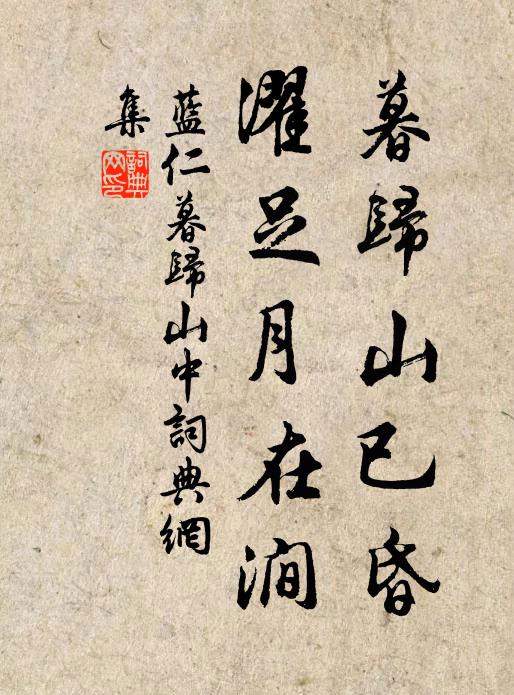 暮歸山已昏
濯足月在澗
藍仁暮歸山中詞典網
集
詞典網印